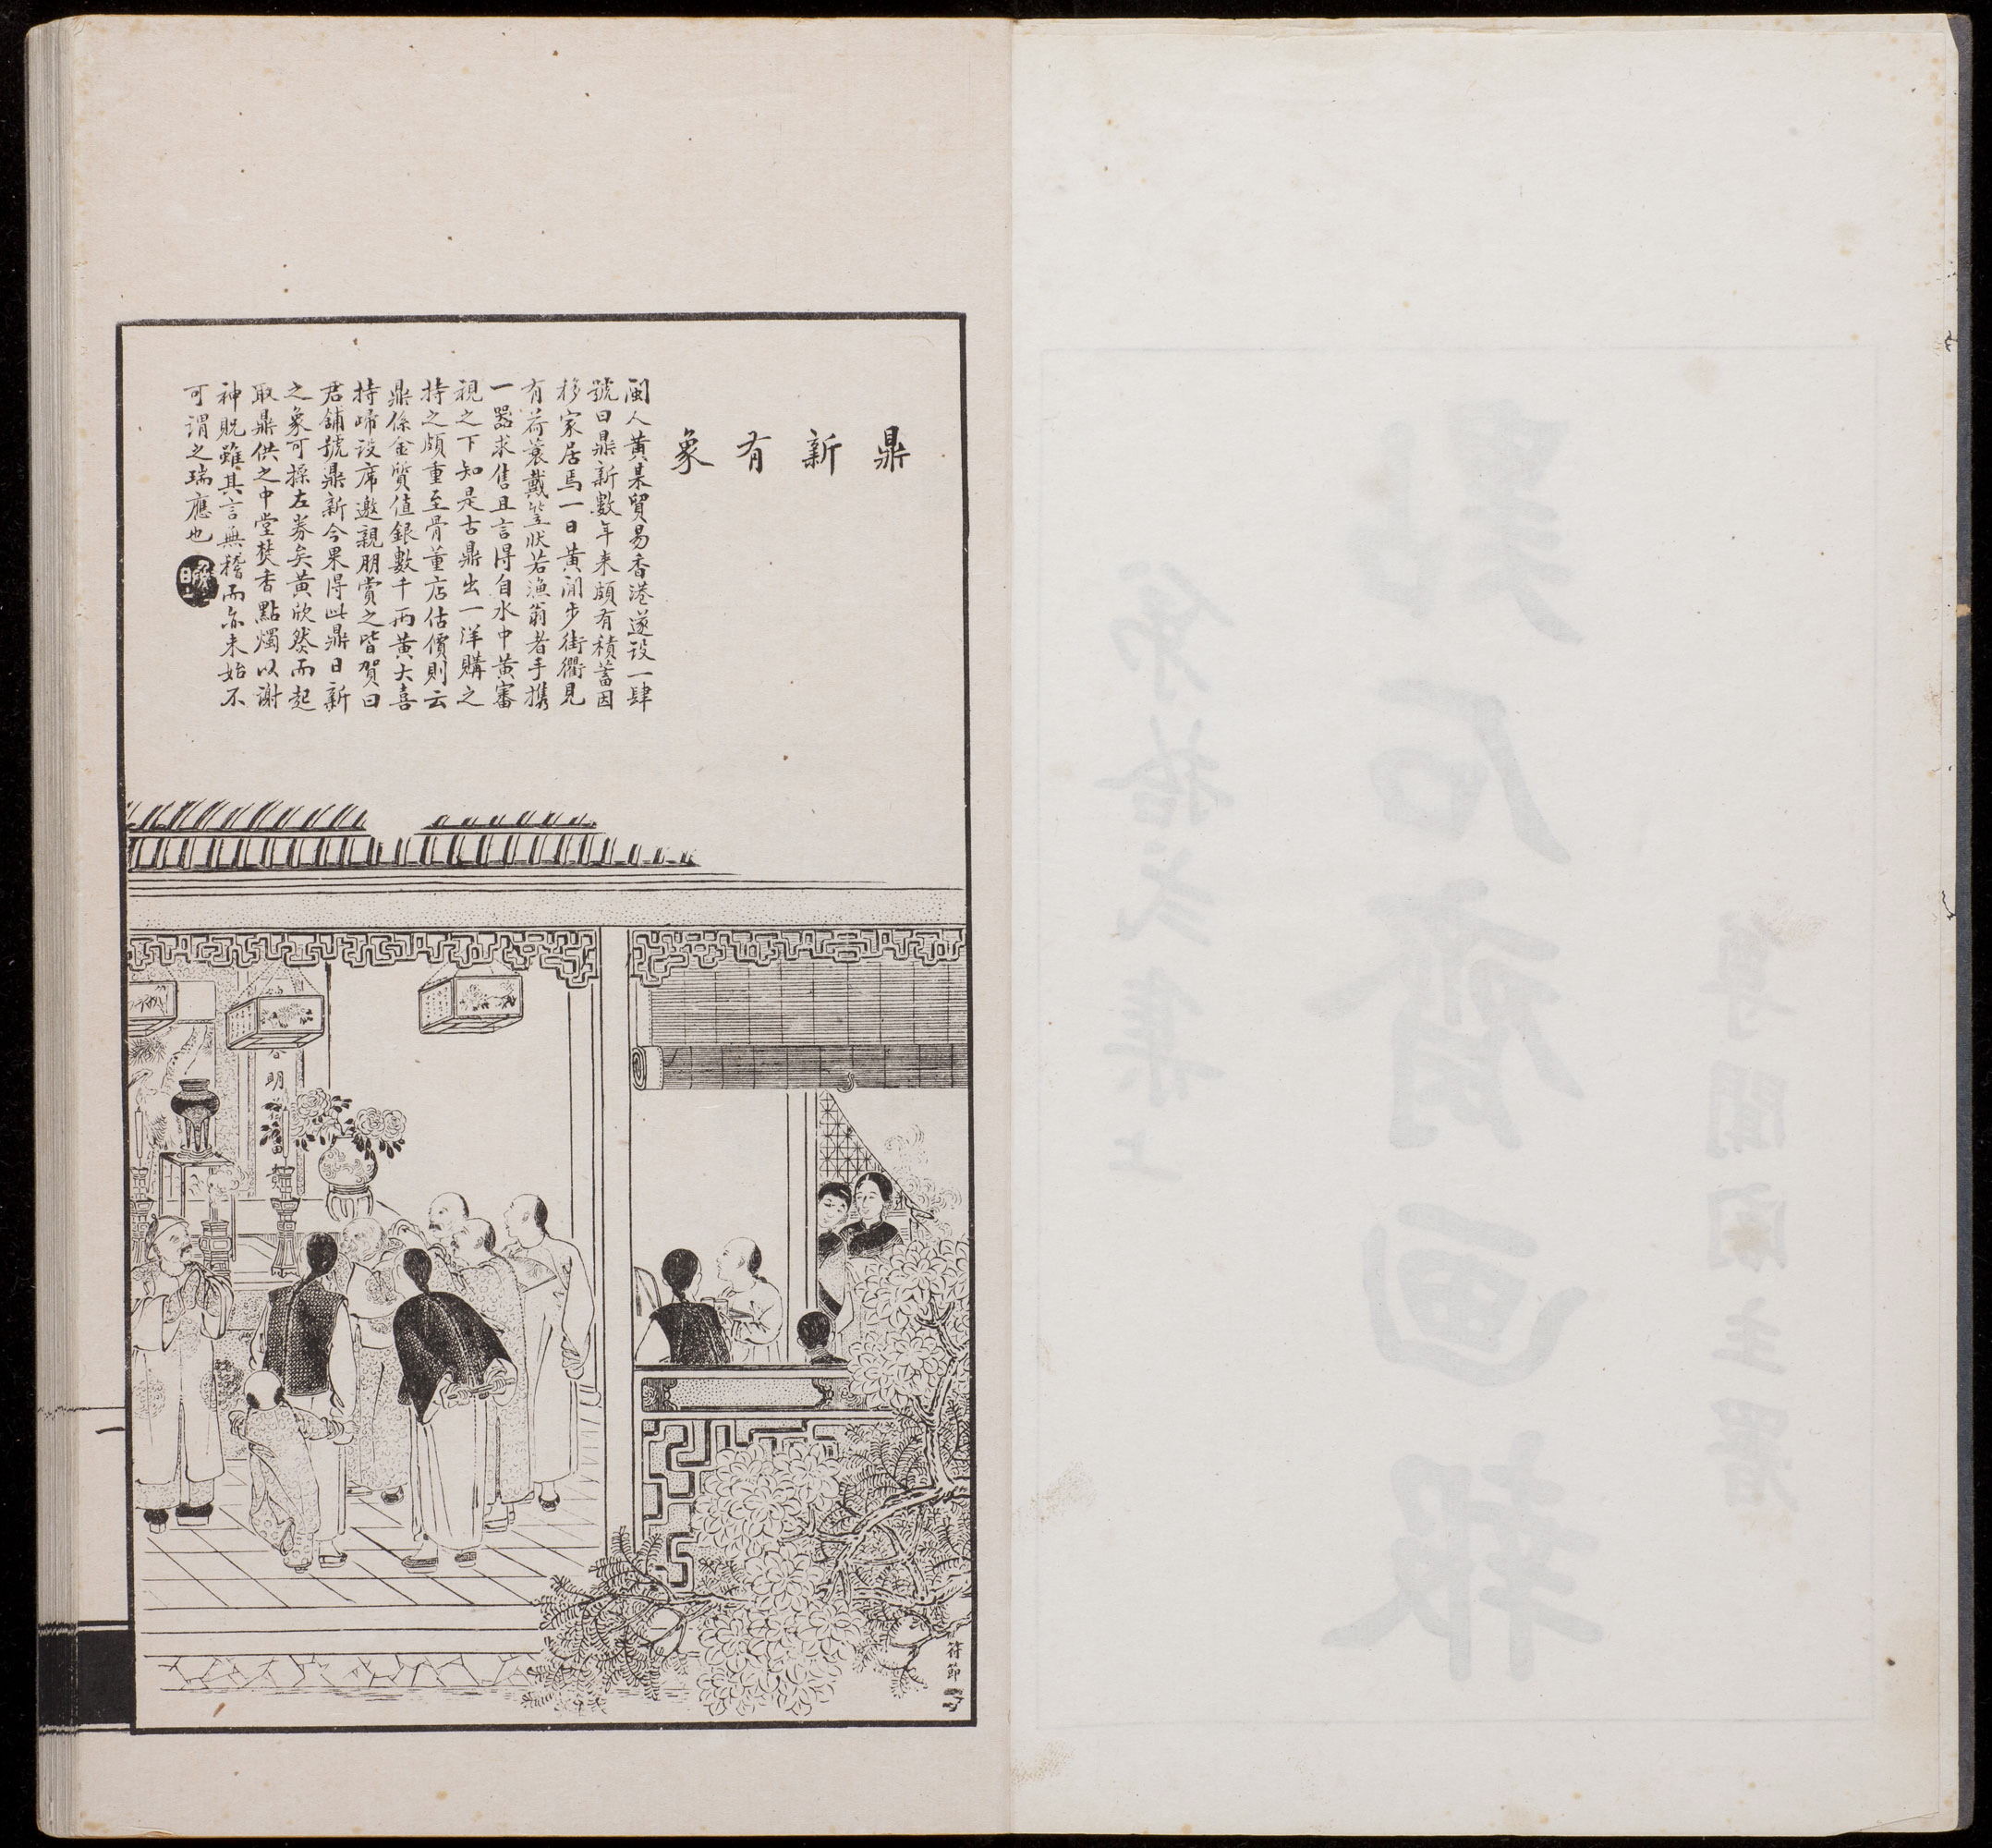 鼎新有象
閩人黃某貿易香港遂設一肆
號曰鼎新數年来頗有積蓄因
移家居焉一日黃閒步街衢見
有荷蓑戴笠狀若漁翁者手攜
一器求售且言得自水中黃審
視之下知是古鼎出一洋購之
持之頗重至骨董店估價則云
鼎係金質值銀數千两黃大喜
持歸設席邀親朋賞之皆賀曰
君舖號鼎新今果得此鼎日新
之象可操左券矣黃欣然而起
取鼎供之中堂焚香點燭以謝
神貺雖其言無稽而亦未始不
可謂之瑞應也
明
符節
一
點石齋画報
尊聞閣主署